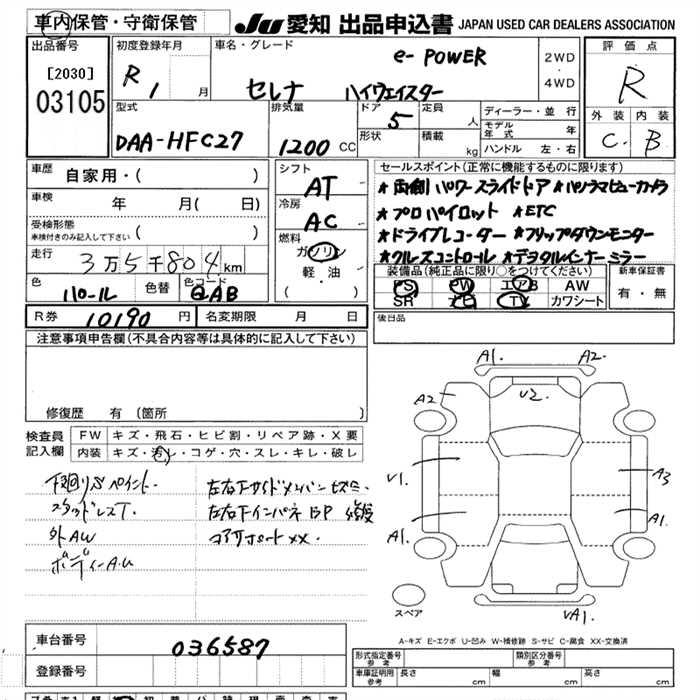 車内保管・守衛保管
JU 愛知 出品申込書 JAPAN USED CAR DEALERS ASSOCIATION
出品番号
[2030]
03105
初度登録年月
R 1 月
車名・グレード
e-POWER
セレナ ハイウェイスター
2WD
・
4WD
評価点
R
外装 内装
C B
型式
DAA-HFC27
排気量
1200 CC
ドア
5
形状
定員 人
積載 kg
ディーラー・並行
モデル年式 年
ハンドル 左・右
車歴
自家用・( )
車検 年 月( 日)
受検形態
車検付きのみ記入して下さい ( )
走行
3万5千804km
色
パール
色替
色コード
QAB
シフト
AT
冷房
AC
燃料
ガソリン
軽・油
( )
セールスポイント(正常に機能するものに限ります)
★両側パワースライドドア ★パノラマビューカメラ
★プロパイロット ★ETC
★ドライブレコーダー ★フリップダウンモニター
★クルーズコントロール ★デジタルインナーミラー
装備品(純正品に限り○をつけてください)
PS PW エアB AW
SR ナビ TV カワシート
新車保証書
有・無
R券 10190 円
名変期限 月 日
後日品
注意事項申告欄(不具合内容等は具体的に記入して下さい)
修復歴 有 〔箇所 〕
検査員
記入欄
FW キズ・飛石・ヒビ割・リペア跡・X要
内装 キズ・汚レ・コゲ・穴・スレ・キレ・破レ
下回りSペイント.
スタッドレスT.
外AW
ボディーA.U
左右下サイドメンバー
左右下インパネBP 修復
コアサポートXX.
A1. A2.
A2 V2
V1 A3
A1. A1.
VA1.
スペア
A-キズ E-エクボ U-凹み W-補修跡 S-サビ C-腐食 XX-交換済
車台番号
036587
登録番号
形式指定番号
参考
類別区分番号
参考
車庫証明用
参考
長さ cm 幅 cm 高さ cm